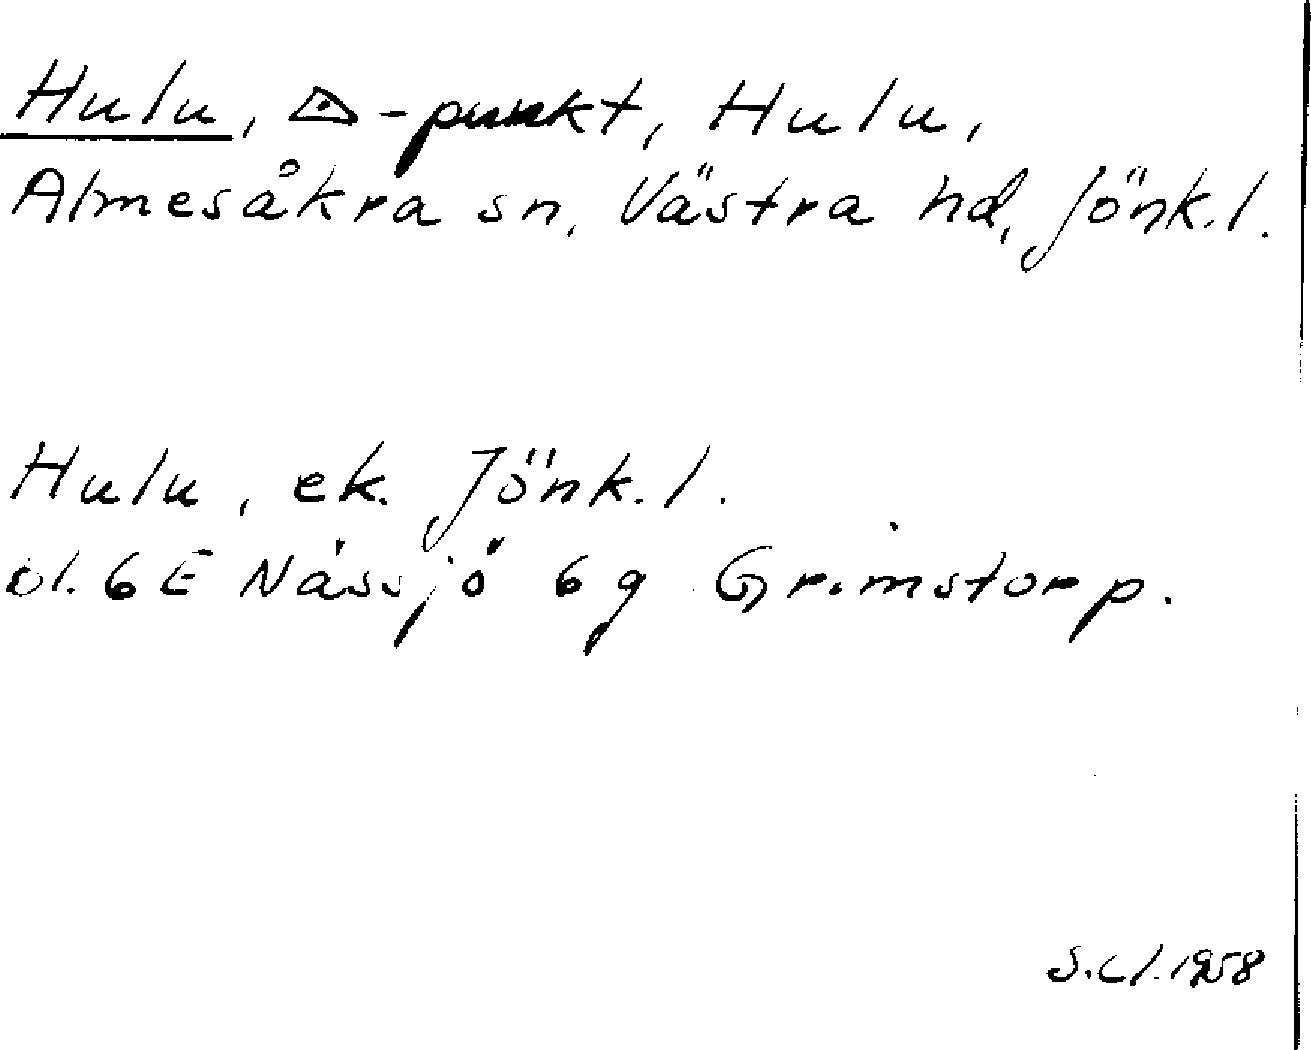 Hulu, △-punkt, Hulu,
Almesåkra sn, Västra hd, Jönk.l.
Hulu, ek. Jönk.l.
bl. 6E Nässjö 6g Grimstorp.
S.Cl. 1958